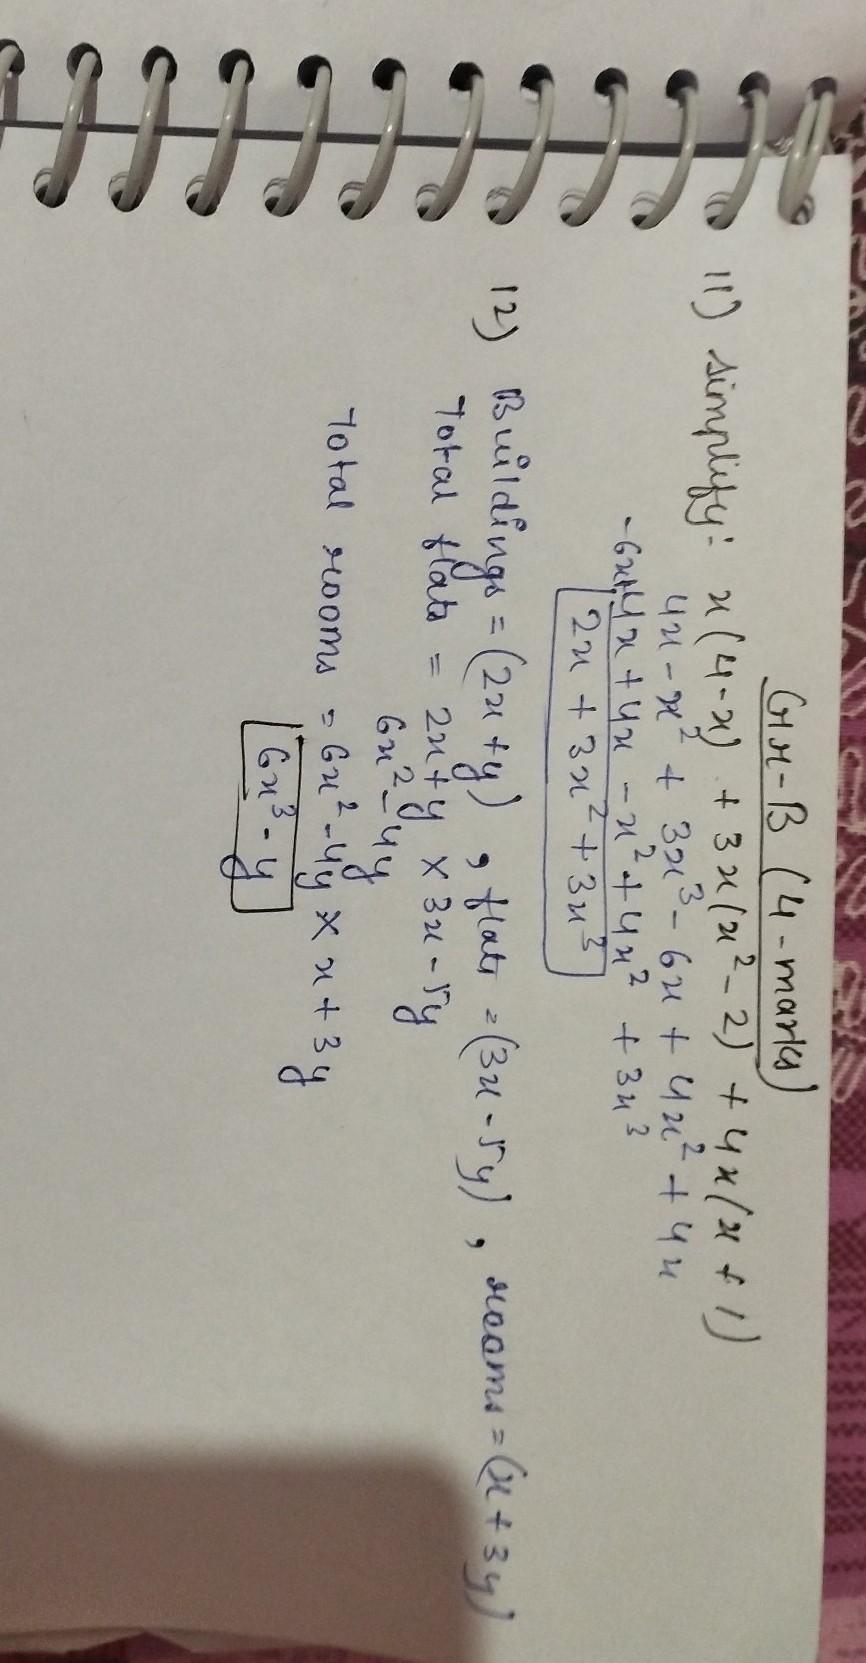 Gr-B (4-marks)
11) Simplify: x(4-x) + 3x(x²-2) + 4x(x+1)
4x - x² + 3x³ - 6x + 4x² + 4x
-6x+4x + 4x - x² + 4x² + 3x³
2x + 3x² + 3x³
12) Buildings = (2x+y), flats = (3x-5y), rooms = (x+3y)
Total flats = 2x+y × 3x-5y
6x² - 4y
Total rooms = 6x² - 4y × x + 3y
6x³ - y